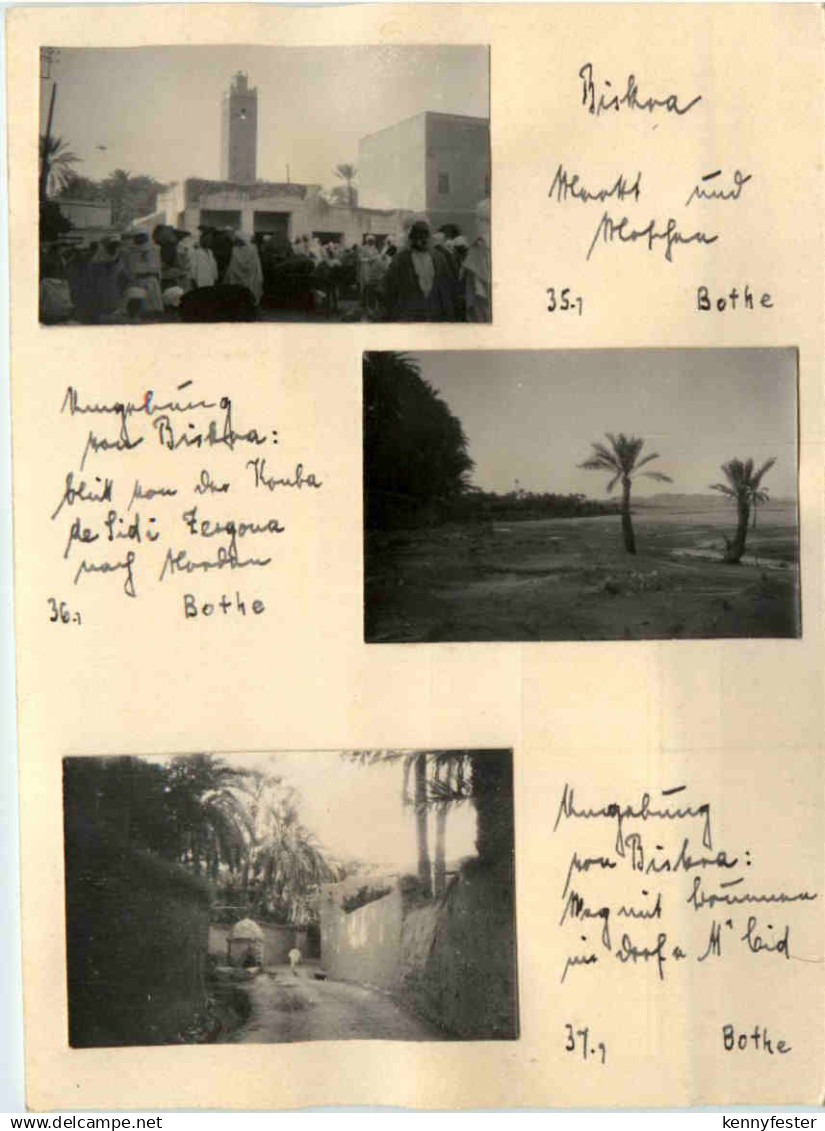 Biskra
Markt und
Moschee
35.) Bothe
Umgebung
von Biskra:
blick von der Kouba
de Sidi Zergoua
nach Norden
36.) Bothe
Umgebung
von Biskra:
Weg mit brunnen
im dorfe M'Cid
37.) Bothe
kennyfester